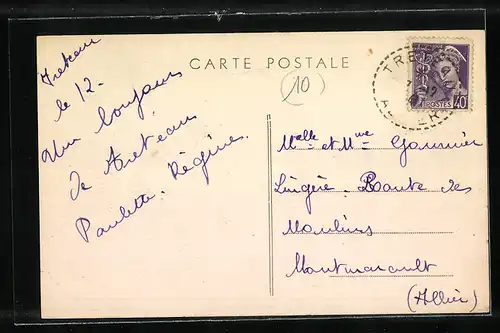 CARTE POSTALE
(10)
Treteau
le 12-
Un bonjour
de Treteau
Paulette. Régine.
TRE
AL ER
POSTES 40
Melle et Mme Gaumier
Lingère. Route des
Moulins
Montmarault
(Allier)